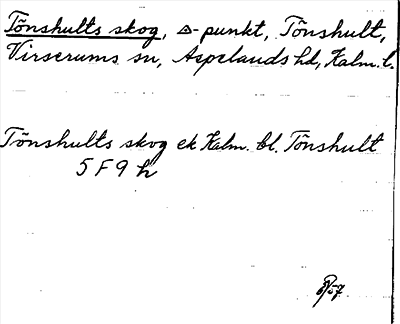 Tönshults skog, △-punkt, Tönshult,
Virserums sn, Aspelands hd, Kalm. l.
Tönshults skog ek Kalm. bl. Tönshult
5 F 9 h